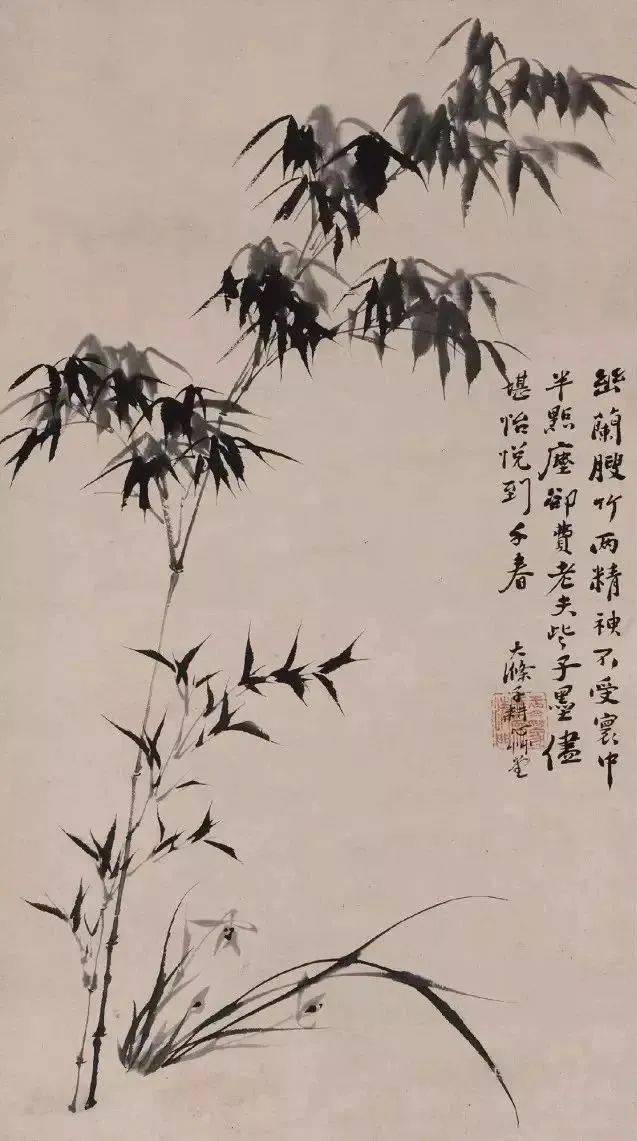 幽蘭瘦竹两精神不受寰中
半點塵卻費老夫些子墨儘
堪怡悅到千春
大滌子耕心草堂